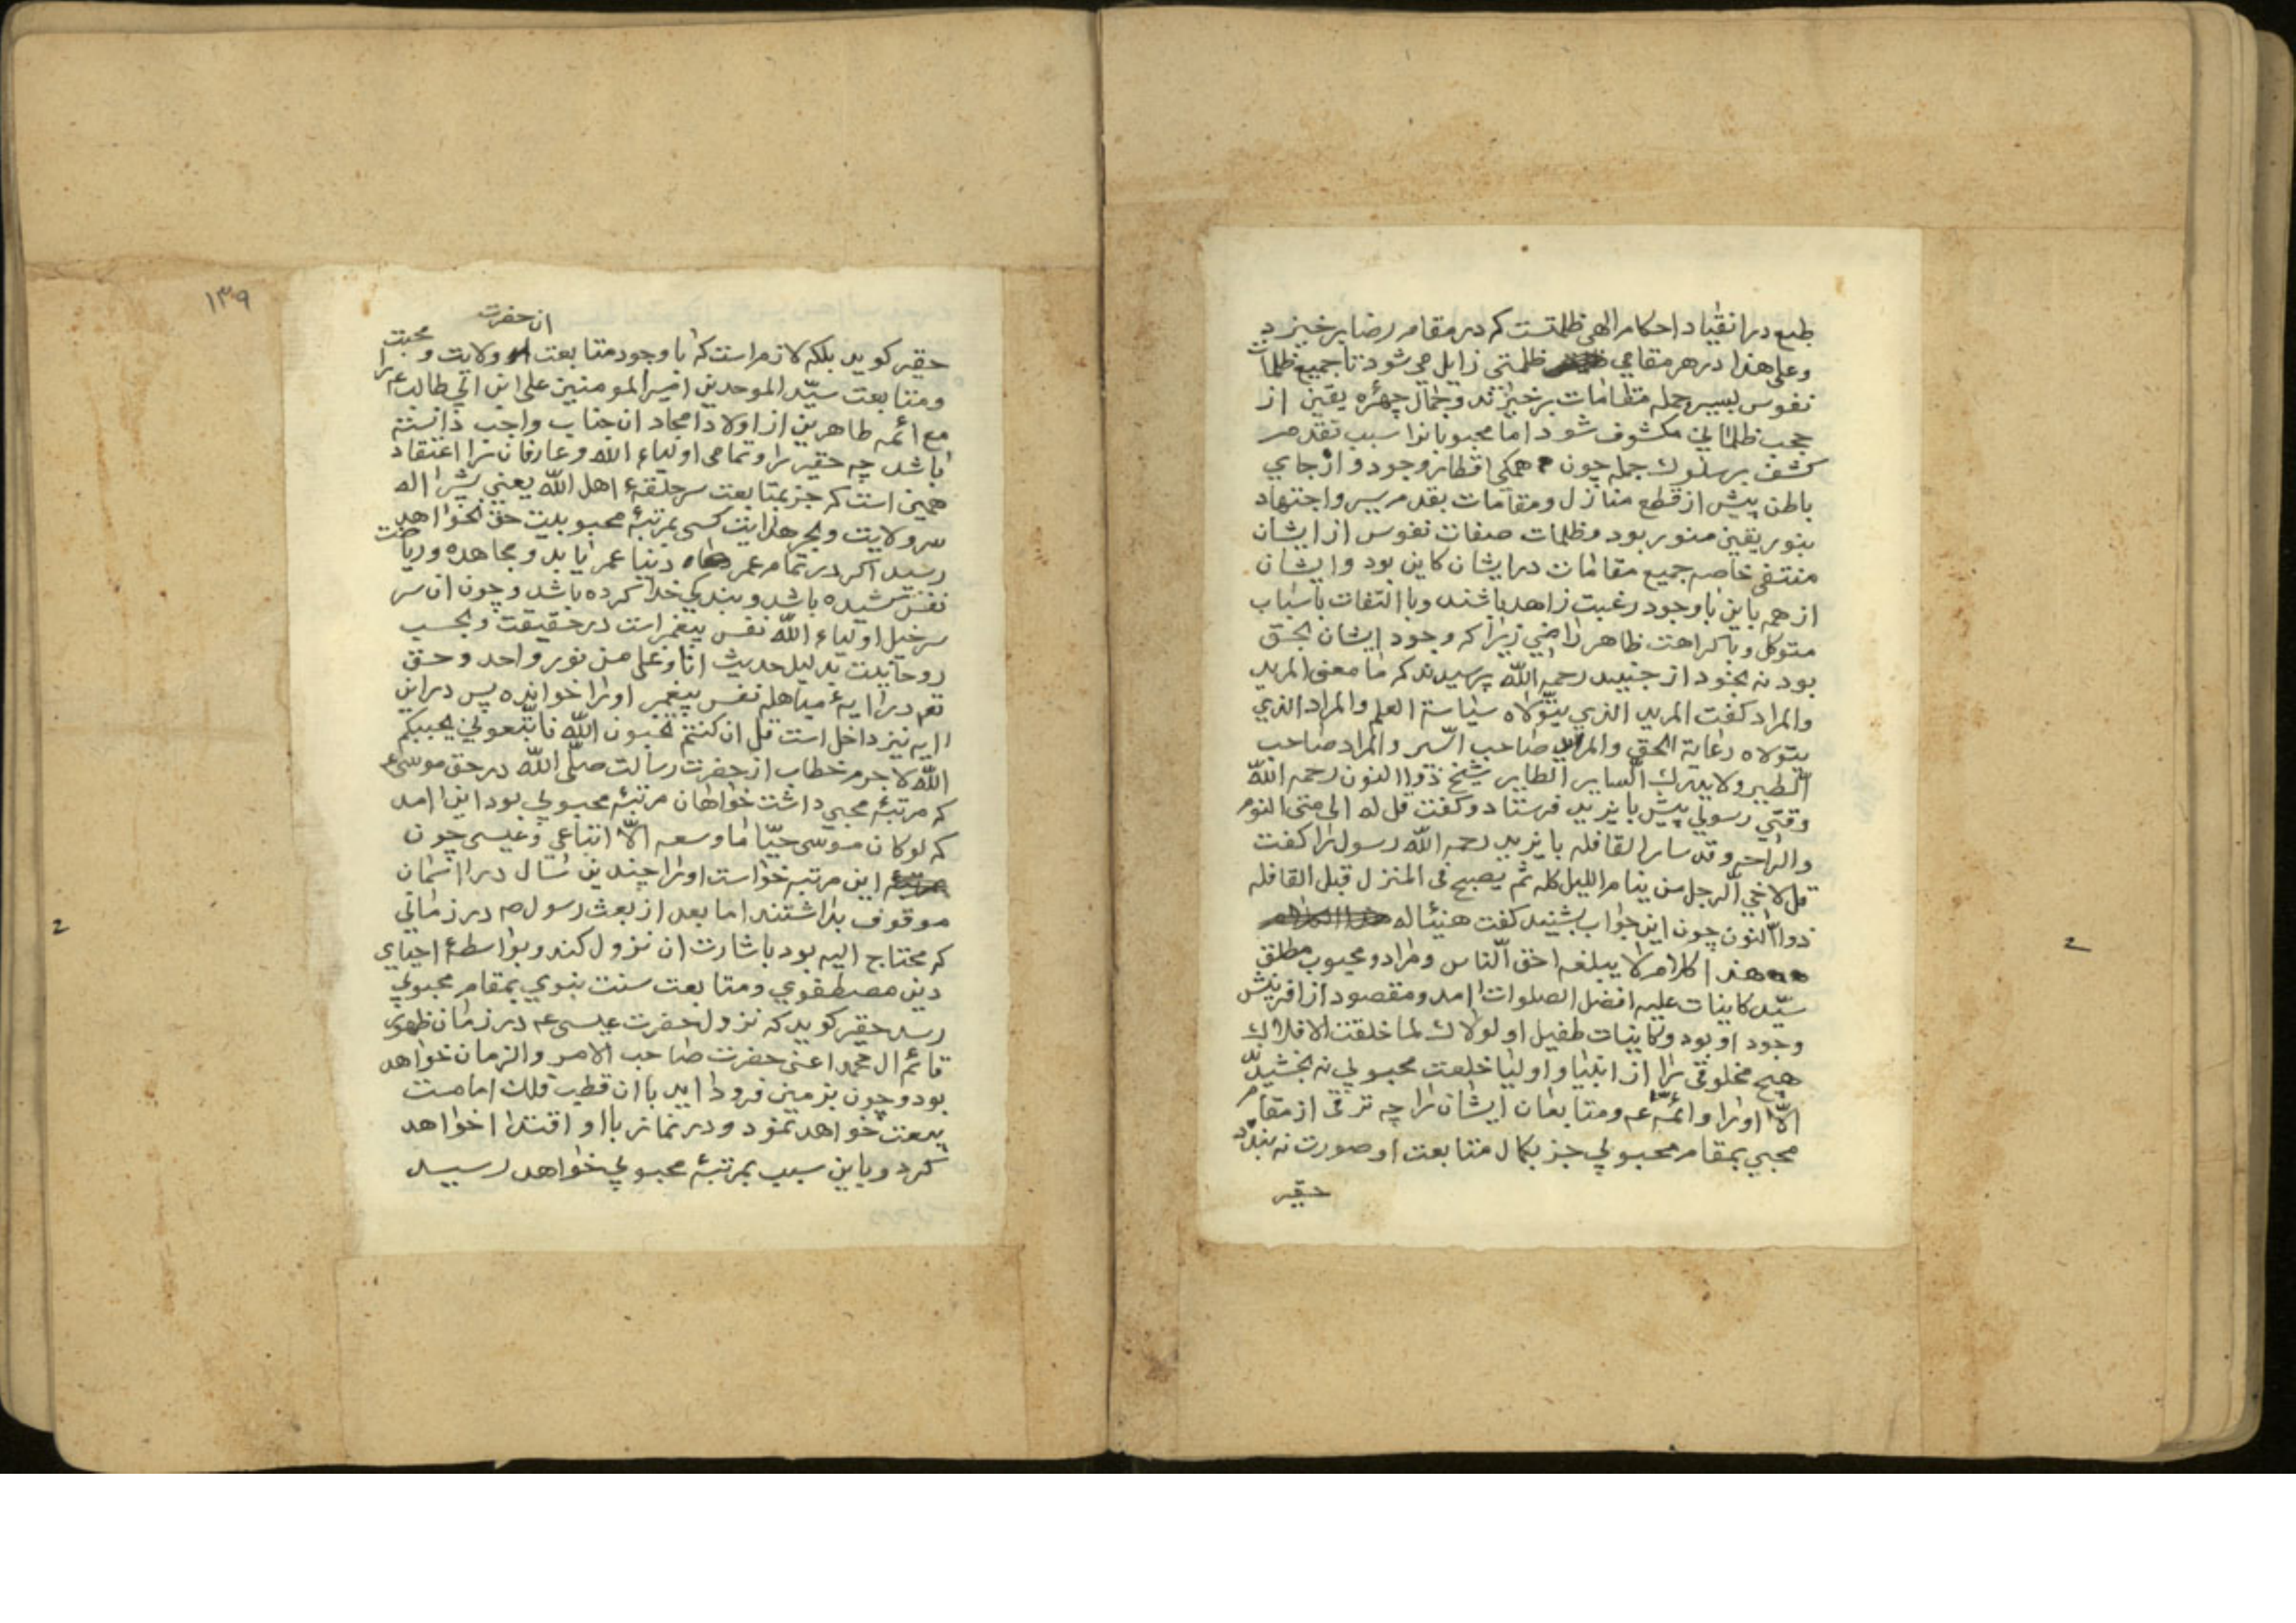 طبع در انقیاد احکام الهی ظلمتست که در مقام رضا برخیزد
وعلی هذا در هر مقامی ظلمتی زایل می شود تا جمیع ظلمات
نفوس بسیر جمله مقامات برخیزند و جمال چهره یقین از
حجب ظلمانی مکشوف شود اما محبوبانرا سبب تقدم
کشف بر سلوک جمله چون همکی اقطار وجود و ارجای
باطن پیش از قطع منازل و مقامات بقدم سیر و اجتهاد
بنور یقین منور بود و ظلمات صفات نفوس از ایشان
منتفی خاصه جمیع مقامات در ایشان کاین بود و ایشان
از همه باین با وجود رغبت زاهد باشند و با التفات باسباب
متوکل و با کراهت ظاهر راضی زیرا که وجود ایشان بحق
بود نه بخود از جنید رحمه الله پرسیدند که ما معنی المرید
والمراد کفت المرید الذي یتولاه سیاسة العلم والمراد الذي
یتولاه رعایة الحق والمرید صاحب السیر والمراد صاحب
الطیر ولا یدرک السایر الطایر شیخ ذوا النون رحمه الله
وقتی رسولی پیش بایزید فرستاد و کفت قل له الی متی النوم
والراحه وقد سار القافله بایزید رحمه الله رسول را کفت
قل لاخي الرجل من ینام اللیل کله ثم یصبح فی المنزل قبل القافله
ذوا النون چون این جواب بشنید کفت هنیئا له
هذا کلام لا یبلغه احق الناس و مراد و محبوب مطلق
سید کاینات علیه افضل الصلوات امد و مقصود از افرینش
وجود او بود و کاینات طفیل او لولاک لما خلقت الافلاک
هیچ مخلوقی را از انبیا و اولیا خلعت محبوبی نه بخشیدند
الا اورا و ائمه عم و متابعان ایشان را چه ترقی از مقام
محبی بمقام محبوبی جز بکمال متابعت او صورت نه بندد
حقیر
۱۳۹
ان حضرت
حقیر کوید بلکه لازم است که با وجود متابعت و ولایت و محبت
و متابعت سید الموحدین امیر المومنین علی ابن ابی طالب عم را
مع ائمه طاهرین از اولاد امجاد ان جناب واجب دانسته
باشد چه حقیر را و تمامی اولیاء الله و عارفان را اعتقاد
همین است که جز بمتابعت سر حلقهٔ اهل الله یعنی شیر اله
سر ولایت و بحر هدایت کسی بمرتبهٔ محبوبیت حق نخواهد
رسید اکر در تمام عمر دنیا عمر یابد و مجاهده و ریاضت
نفس کشیده باشد و بندکی خدا کرده باشد و چون ان سر
سرخیل اولیاء الله نفس پیغمبر است در حقیقت و بحسب
روحانیت بدلیل حدیث انا و علی من نور واحد و حق
تعم در ایهٔ مباهله نفس پیغمبر اورا خوانده پس در این
ایه نیز داخل است قل ان کنتم تحبون الله فاتبعونی یحببکم
الله لاجرم خطاب از حضرت رسالت صلی الله در حق موسی عم
که مرتبهٔ محبی داشت خواهان مرتبهٔ محبوبی بود این امد
که لو کان موسی حیا ما وسعه الا اتباعی و عیسی چون
این مرتبه خواست اورا چندین سال در اسمان
موقوف بداشتند اما بعد از بعث رسول ص در زمانی
که محتاج الیه بود باشارت ان نزول کند و بواسطهٔ احیای
دین مصطفوی و متابعت سنت نبوی بمقام محبوبی
رسد حقیر کوید که نزول حضرت عیسی عم در زمان ظهور
قائم ال محمد اعنی حضرت صاحب الامر والزمان خواهد
بود و چون بزمین فرود اید با ان قطب فلک امامت
بیعت خواهد نمود و در نماز باو اقتدا خواهد
کرد و باین سبب بمرتبهٔ محبوبی خواهد رسید